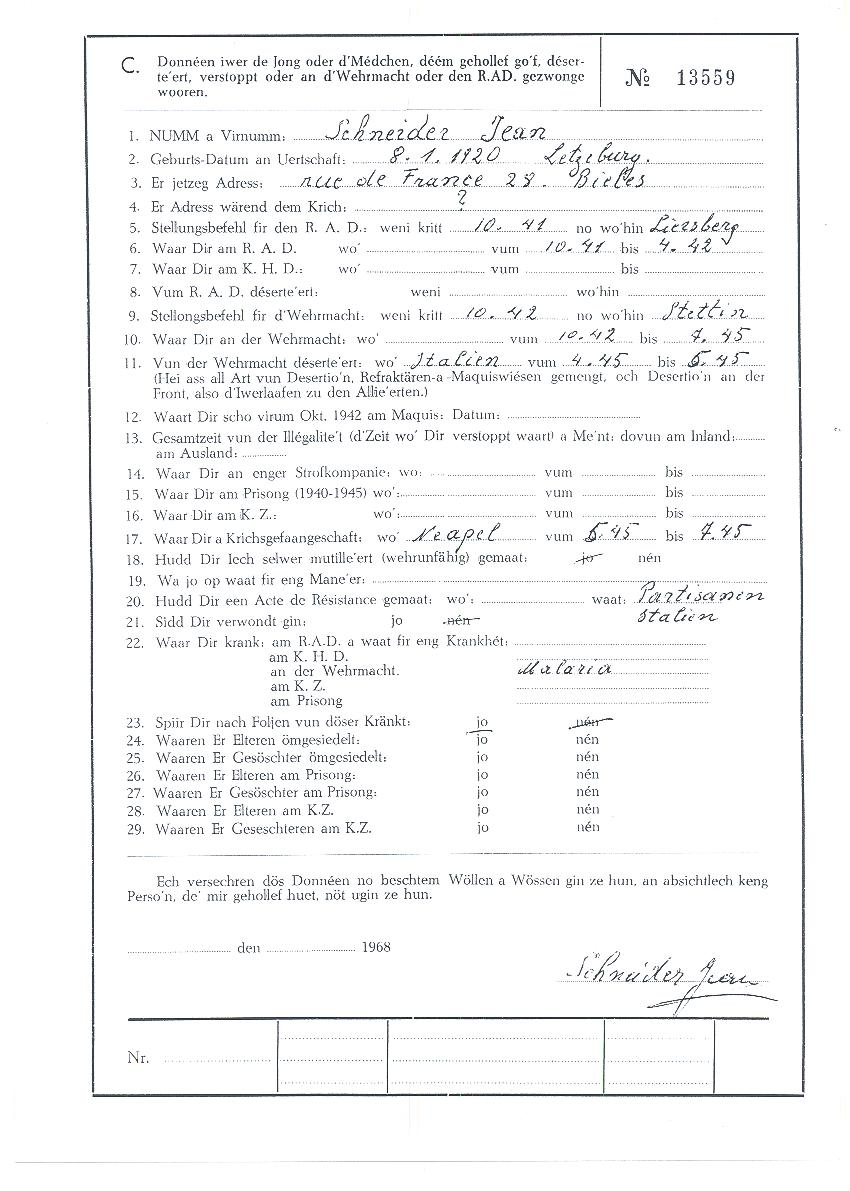 C. Donnéen iwer de Jong oder d'Médchen, déém gehollef go'f, déser-
te'ert, verstoppt oder an d'Wehrmacht oder den R.AD. gezwonge
wooren.
№ 13559
1. NUMM a Virnumm: Schneider Jean
2. Geburts-Datum an Uertschaft: 8.1.1920 Letzeburg.
3. Er jetzeg Adress: rue de France 28. Bieles
4. Er Adress wärend dem Krich: ?
5. Stellungsbefehl fir den R. A. D.: weni kritt 10. 41 no wo'hin Liersberg
6. Waar Dir am R. A. D. wo' vum 10.41 bis 4.42
7. Waar Dir am K. H. D.: wo' vum bis
8. Vum R. A. D. déserte'ert: weni wo'hin
9. Stellongsbefehl fir d'Wehrmacht: weni kritt 10. 42 no wo'hin Stettin
10. Waar Dir an der Wehrmacht: wo' vum 10.42 bis 7. 45
11. Vun der Wehrmacht déserte'ert: wo' Italien vum 4.45 bis 5.45
(Hei ass all Art vun Desertio'n, Refraktären-a-Maquiswiésen gemengt, och Desertio'n an der
Front, also d'Iwerlaafen zu den Allie'erten.)
12. Waart Dir scho virum Okt. 1942 am Maquis: Datum:
13. Gesamtzeit vun der Illégalite't (d'Zeit wo' Dir verstoppt waart) a Me'nt: dovun am Inland:
am Ausland:
14. Waar Dir an enger Strofkompanie: wo: vum bis
15. Waar Dir am Prisong (1940-1945) wo': vum bis
16. Waar Dir am K. Z.: wo': vum bis
17. Waar Dir a Krichsgefaangeschaft: wo' Neapel vum 5.45 bis 7.45
18. Hudd Dir Iech selwer mutille'ert (wehrunfähig) gemaat: jo nén
19. Wa jo op waat fir eng Mane'er:
20. Hudd Dir een Acte de Résistance gemaat: wo': waat: Partisanen
Italien
21. Sidd Dir verwondt gin: jo nén
22. Waar Dir krank: am R.A.D. a waat fir eng Krankhét:
am K. H. D.
an der Wehrmacht. Malaria
am K. Z.
am Prisong
23. Spiir Dir nach Foljen vun döser Kränkt: jo nén
24. Waaren Er Elteren ömgesiedelt: jo nén
25. Waaren Er Gesöschter ömgesiedelt: jo nén
26. Waaren Er Elteren am Prisong: jo nén
27. Waaren Er Gesöschter am Prisong: jo nén
28. Waaren Er Elteren am K.Z. jo nén
29. Waaren Er Geseschteren am K.Z. jo nén
Ech versechren dös Donnéen no beschtem Wöllen a Wössen gin ze hun, an absichtlech keng
Perso'n, de' mir gehollef huet, nöt ugin ze hun.
den 1968
Schneider Jean
Nr.